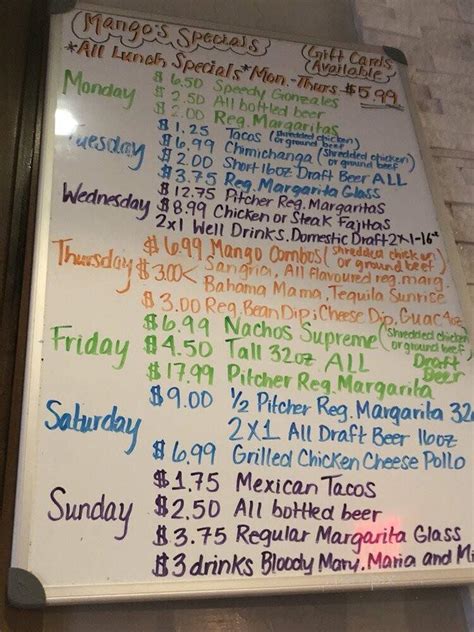 Mango's Specials
Gift Cards Available
*All Lunch Specials* Mon.-Thurs $5.99
Monday
$6.50 Speedy Gonzales
$2.50 All bottled beer
$2.00 Reg. Margaritas
Tuesday
$1.25 Tacos (shredded chicken or ground beef)
$6.99 Chmichanga (Shredded chicken or ground beef)
$2.00 Short 16oz Draft Beer ALL
$3.75 Reg. Margarita Glass
Wednesday
$12.75 Pitcher Reg. Margaritas
$8.99 Chicken or Steak Fajitas
2x1 Well Drinks. Domestic Draft 2x1-16oz
Thursday
$6.99 Mango Combos (shredded chicken or ground beef)
$3.00< Sangria, All Flavoured reg. marg.
Bahama Mama, Tequila Sunrise
$3.00 Reg. Bean Dip, Cheese Dip, Guac 4oz
Friday
$6.99 Nachos Supreme (shredded chicken or ground beef)
$4.50 Tall 32oz ALL Draft Beer
$17.99 Pitcher Reg. Margarita
Saturday
$9.00 1/2 Pitcher Reg. Margarita
2X1 All Draft Beer 16oz
$6.99 Grilled Chicken Cheese Pollo
Sunday
$1.75 Mexican Tacos
$2.50 All bottled beer
$3.75 Regular Margarita Glass
$3 drinks Bloody Mary, Maria and